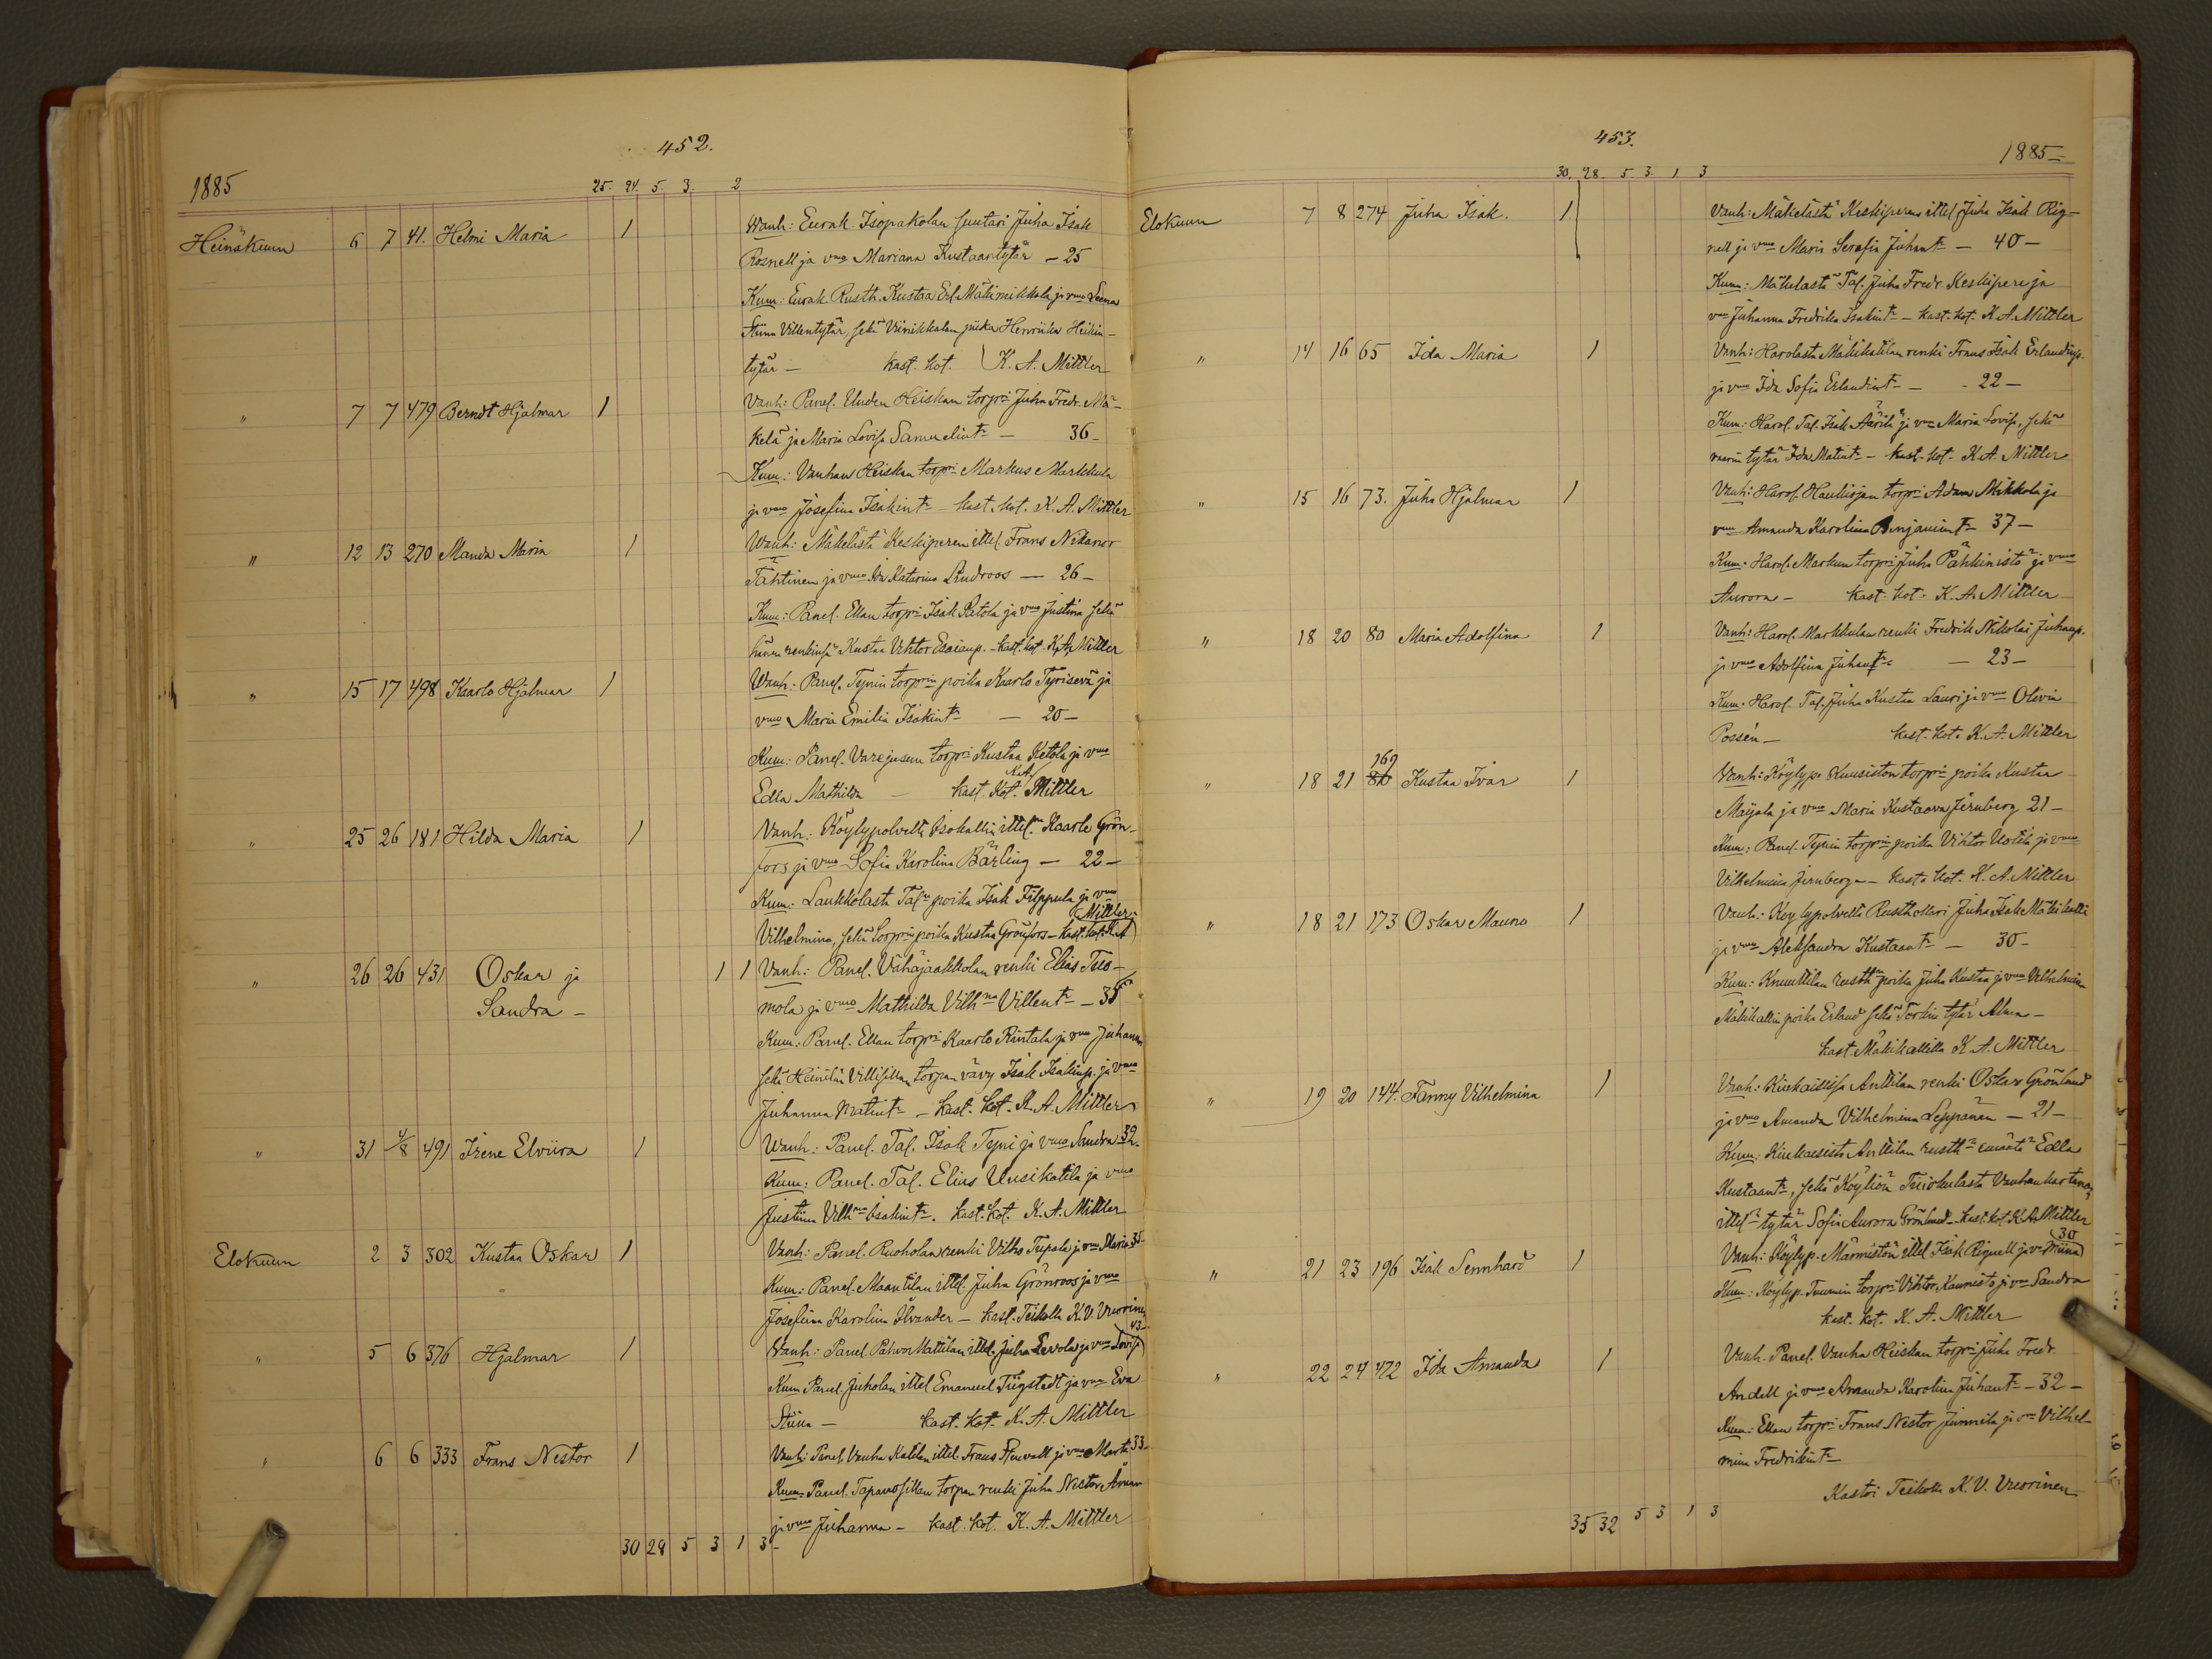 452.
1885
25. 24. 5. 3. 2
Heinäkuun 6 7 41. Helmi Maria 1 Wanh: Eurak Isopakolan suutari Juha Isak
Rosnell ja vmo Mariana Kustaantytär — 25
Kum: Eurak Rusth. Kustaa Erl. Mäkimikkola ja vmo Leena
Stiina Villentytär, sekä piika Henriika Heikin-
tytär — kast. kot. K. A. Mittler
" 7 7 479 Berndt Hjalmar 1 Vanh: Panel. Uuden Heiskan torpri Juha Fredr. Mä-
kelä ja Maria Lovisa Samuelint. — 36 —
Kum: Vanhan Heiskan torpri Markus Markkula
ja vmo Josefina Isakint. — kast. kot. K. A. Mittler
" 12 13 270 Manda Maria 1 Wanh: Mäkelästä Keskiperen ittel. Frans Nikanor
Tähtinen ja vmo Ida Katarina Lindroos — 26 —
Kum: Panel. Ellan torpri Isak Ratola ja vmo Justina sekä
hänen renkinsä Kustaa Vihtor Esaianp. — kast. kot. K. A. Mittler
" 15 17 498 Kaarlo Hjalmar 1 Wanh: Panel. Tynin torprin poika Kaarlo Tyrisevä ja
vmo Maria Emilia Isakint. — 20 —
Kum: Panel. torpri Kustaa Ketola ja vmo
Edla Mathilda — kast. Kot. K. A. Mittler
" 25 26 181 Hilda Maria 1 Vanh: Köylypolvelta Isokallin ittel. Kaarle Grön-
fors ja vmo Sofia Karolina Bärling — 22 —
Kum: Laukkolasta Tal. poika Isak Filppula ja vmo
Vilhelmina, sekä torprin poika Kustaa Grönfors — kast. kot. K. A. Mittler
" 26 26 431 Oskar ja 1 1 Vanh: Panel. Vähäjaakkolan renki Elias Tuo-
Sandra — mola ja vmo Mathilda Vilhna Villent. — 35
Kum: Panel. Ellan torpri Kaarlo Rintala ja vmo Juhanna
sekä Heinilän Villisillan torpan vävy Isak Isakinp. ja vmo
Juhanna Matint. — Kast. Kot. K. A. Mittler
" 31 4/8 491 Irene Elviira 1 Wanh: Panel. Tal. Isak Tyni ja vmo Sandra 32 —
Kum: Panel. Tal. Elias Uusikatila ja vmo
Justiina Vilhna Isakint. kast. kot. K. A. Mittler
Elokuun 2 3 302 Kustaa Oskar 1 Vanh: Panel. Ruoholan renki Vilho Tupala ja vmo Maria 35 —
Kum: Panel. Maantilan ittel. Juha Grönroos ja vmo
Josefina Karolina — kast. Teikolla K. V. Vuorinen
" 5 6 376 Hjalmar 1 Wanh: Panel. Pahvo Mattilan ittel. Juha Levola ja vmo Lovisa 43 —
Kum Panel. Juholan ittel Emanuel Tiigstedt ja vmo Eva
Stiina — kast. kot. K. A. Mittler
" 6 6 333 Frans Nestor 1 Vanh: Panel. Vanha Katilan ittel. Frans ja vmo Marta 33 —
Kum: Panel. Tapanosillan torpan renki Juha Nestor
ja vmo Juhanna — kast. kot. K. A. Mittler
30 28 5 3 1 3 —
453.
1885 —
30. 28. 5 3. 1 3
Elokuun 7 8 274 Juha Isak. 1 Vanh: Mäkelästä Keskiperen ittel Juha Isak Rig-
nell ja vmo Maria Serafia Juhant. — 40 —
Kum: Mäkelästä Tal. Juha Fredr. Keskipere ja
vmo Juhanna Fredrika Isakint. — kast. kot. K. A. Mittler
" 14 16 65 Ida Maria 1 Vanh: Harolasta Mäkikatilan renki Frans Isak Erlandinp.
ja vmo Ida Sofia Erlandint. — 22 —
Kum: Harol. Tal. Isak Äärilä ja vmo Maria Lovisa, sekä
vaarin tytär Ida Matint. — kast. kot. K. A. Mittler
" 15 16 73. Juha Hjalmar 1 Vanh: Harol. Haukiojan torpri Adam Mikkola ja
vmo Amanda Karolina Benjamint. 37 —
Kum: Harol. Markun torpri Juha Pähkinistö ja vmo
Aurora — kast. kot. K. A. Mittler
" 18 20 80 Maria Adolfina 1 Vanh: Harol. Markkulan renki Fredrik Nikolai Juhanp.
ja vmo Adolfina Juhant. — 23 —
Kum: Harol. Tal. Juha Kustaa Lauri ja vmo Olivia
Possén — kast. kot. K. A. Mittler
" 18 21 169 80 Kustaa Ivar 1 Vanh: Köylyp. Kuusiston torpri poika Kustaa
Maijala ja vmo Maria Kustaava Jernberg 21 —
Kum: Panel. Tynin torprin poika Vihtor Uotila ja vmo
Vilhelmina Jernberg — kast. kot. K. A. Mittler
" 18 21 173 Oskar Mauno 1 Vanh: Köylypolvelta Rusthollari Juha Isak Mäkikalli
ja vmo Aleksandra Kustaant. — 30 —
Kum: Knuutilan rusth. poika Juha Kustaa ja vmo Vilhelmiina
Mäkikallin poika Erland sekä tytär Alma —
kast. Mäkikallilla K. A. Mittler
" 19 20 144. Fanny Vilhelmina 1 Vanh: Kiukaisissa Anttilan renki Oskar Grönlund
ja vmo Amanda Vilhelmina Leppänen — 21 —
Kum: Kiukaisista Anttilan rusth. emäntä Edla
Kustaant., sekä Köyliön Vanhankartanon
ittel. tytär Sofia Aurora Grönlund — kast. kot. K. A. Mittler
" 21 23 196 Isak Sennhard 1 Vanh: Köylyp. Märmistön ittel Isak Rignell ja vmo Miina 30
Kum: Köylyp. Tuurnin torpri Vihtor Kaunisto ja vmo Sandra
kast. kot. K. A. Mittler
" 22 24 472 Ida Amanda 1 Vanh. Panel. Vanha Heiskan torpri Juha Fredr.
Andell ja vmo Amanda Karolina Juhant. — 32 —
Kum: Ellan torpri Frans Nestor Junnila ja vmo Vilhel-
mina Fredrikint. —
Kastoi Teikolla K. V. Vuorinen
35 32 5 3 1 3